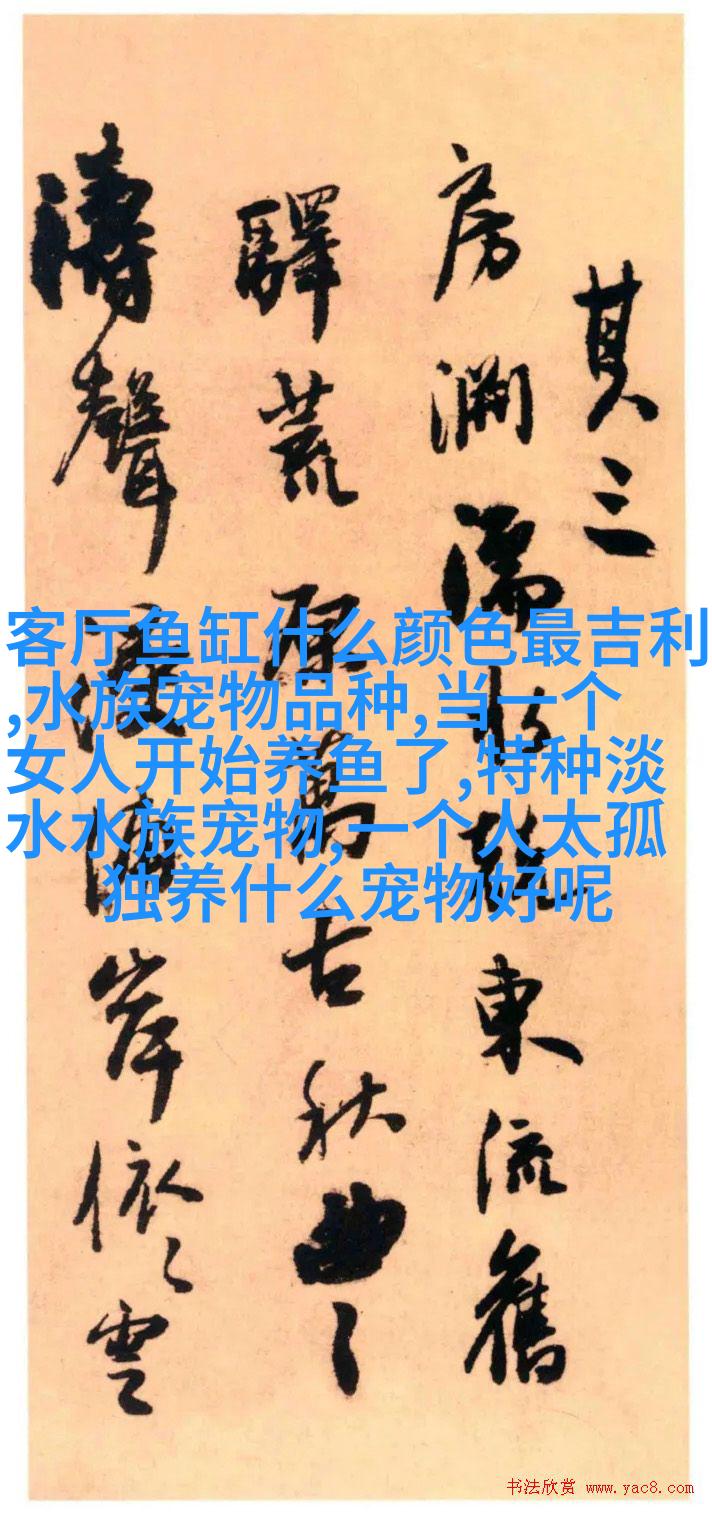 其三
房濡東流舊
驛荒原萬古秋曲々
濤聲岸依々雲
客厅鱼缸什么颜色最吉利
,水族宠物品种,当一个
女人开始养鱼了,特种淡
水水族宠物,一个人太孤
独养什么宠物好呢
书法欣赏 www.yac8.com